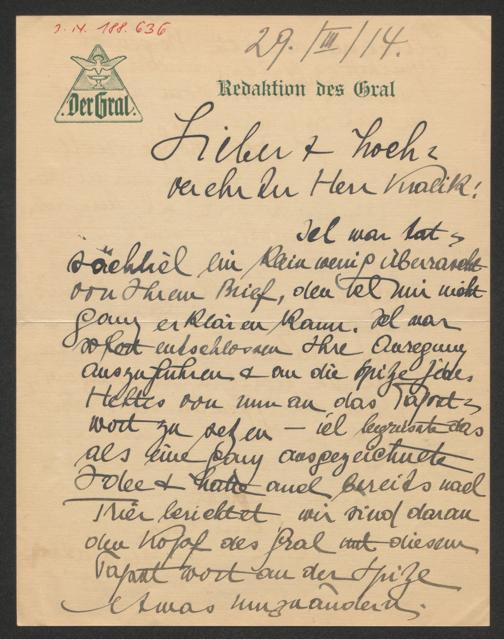 J.N. 188.636
29./III/14.
Der Gral.
Redaktion des Gral
Lieber & hoch-
verehrter Herr Kralik!
Ich war tat-
sächlich ein klein wenig überrascht
von Ihrem Brief, den ich mir nicht
ganz erklären kann. Ich war
sofort entschlossen Ihre Anregung
auszuführen & an die Spitze jedes
Heftes von nun an das Papst-
wort zu setzen – ich begrüsste das
als eine ganz ausgezeichnete
Idee & hatte auch bereits nach
Trier berichtet wir sind daran
den Kopf des Gral mit diesem
Papstwort an der Spitze
etwas umzuändern.